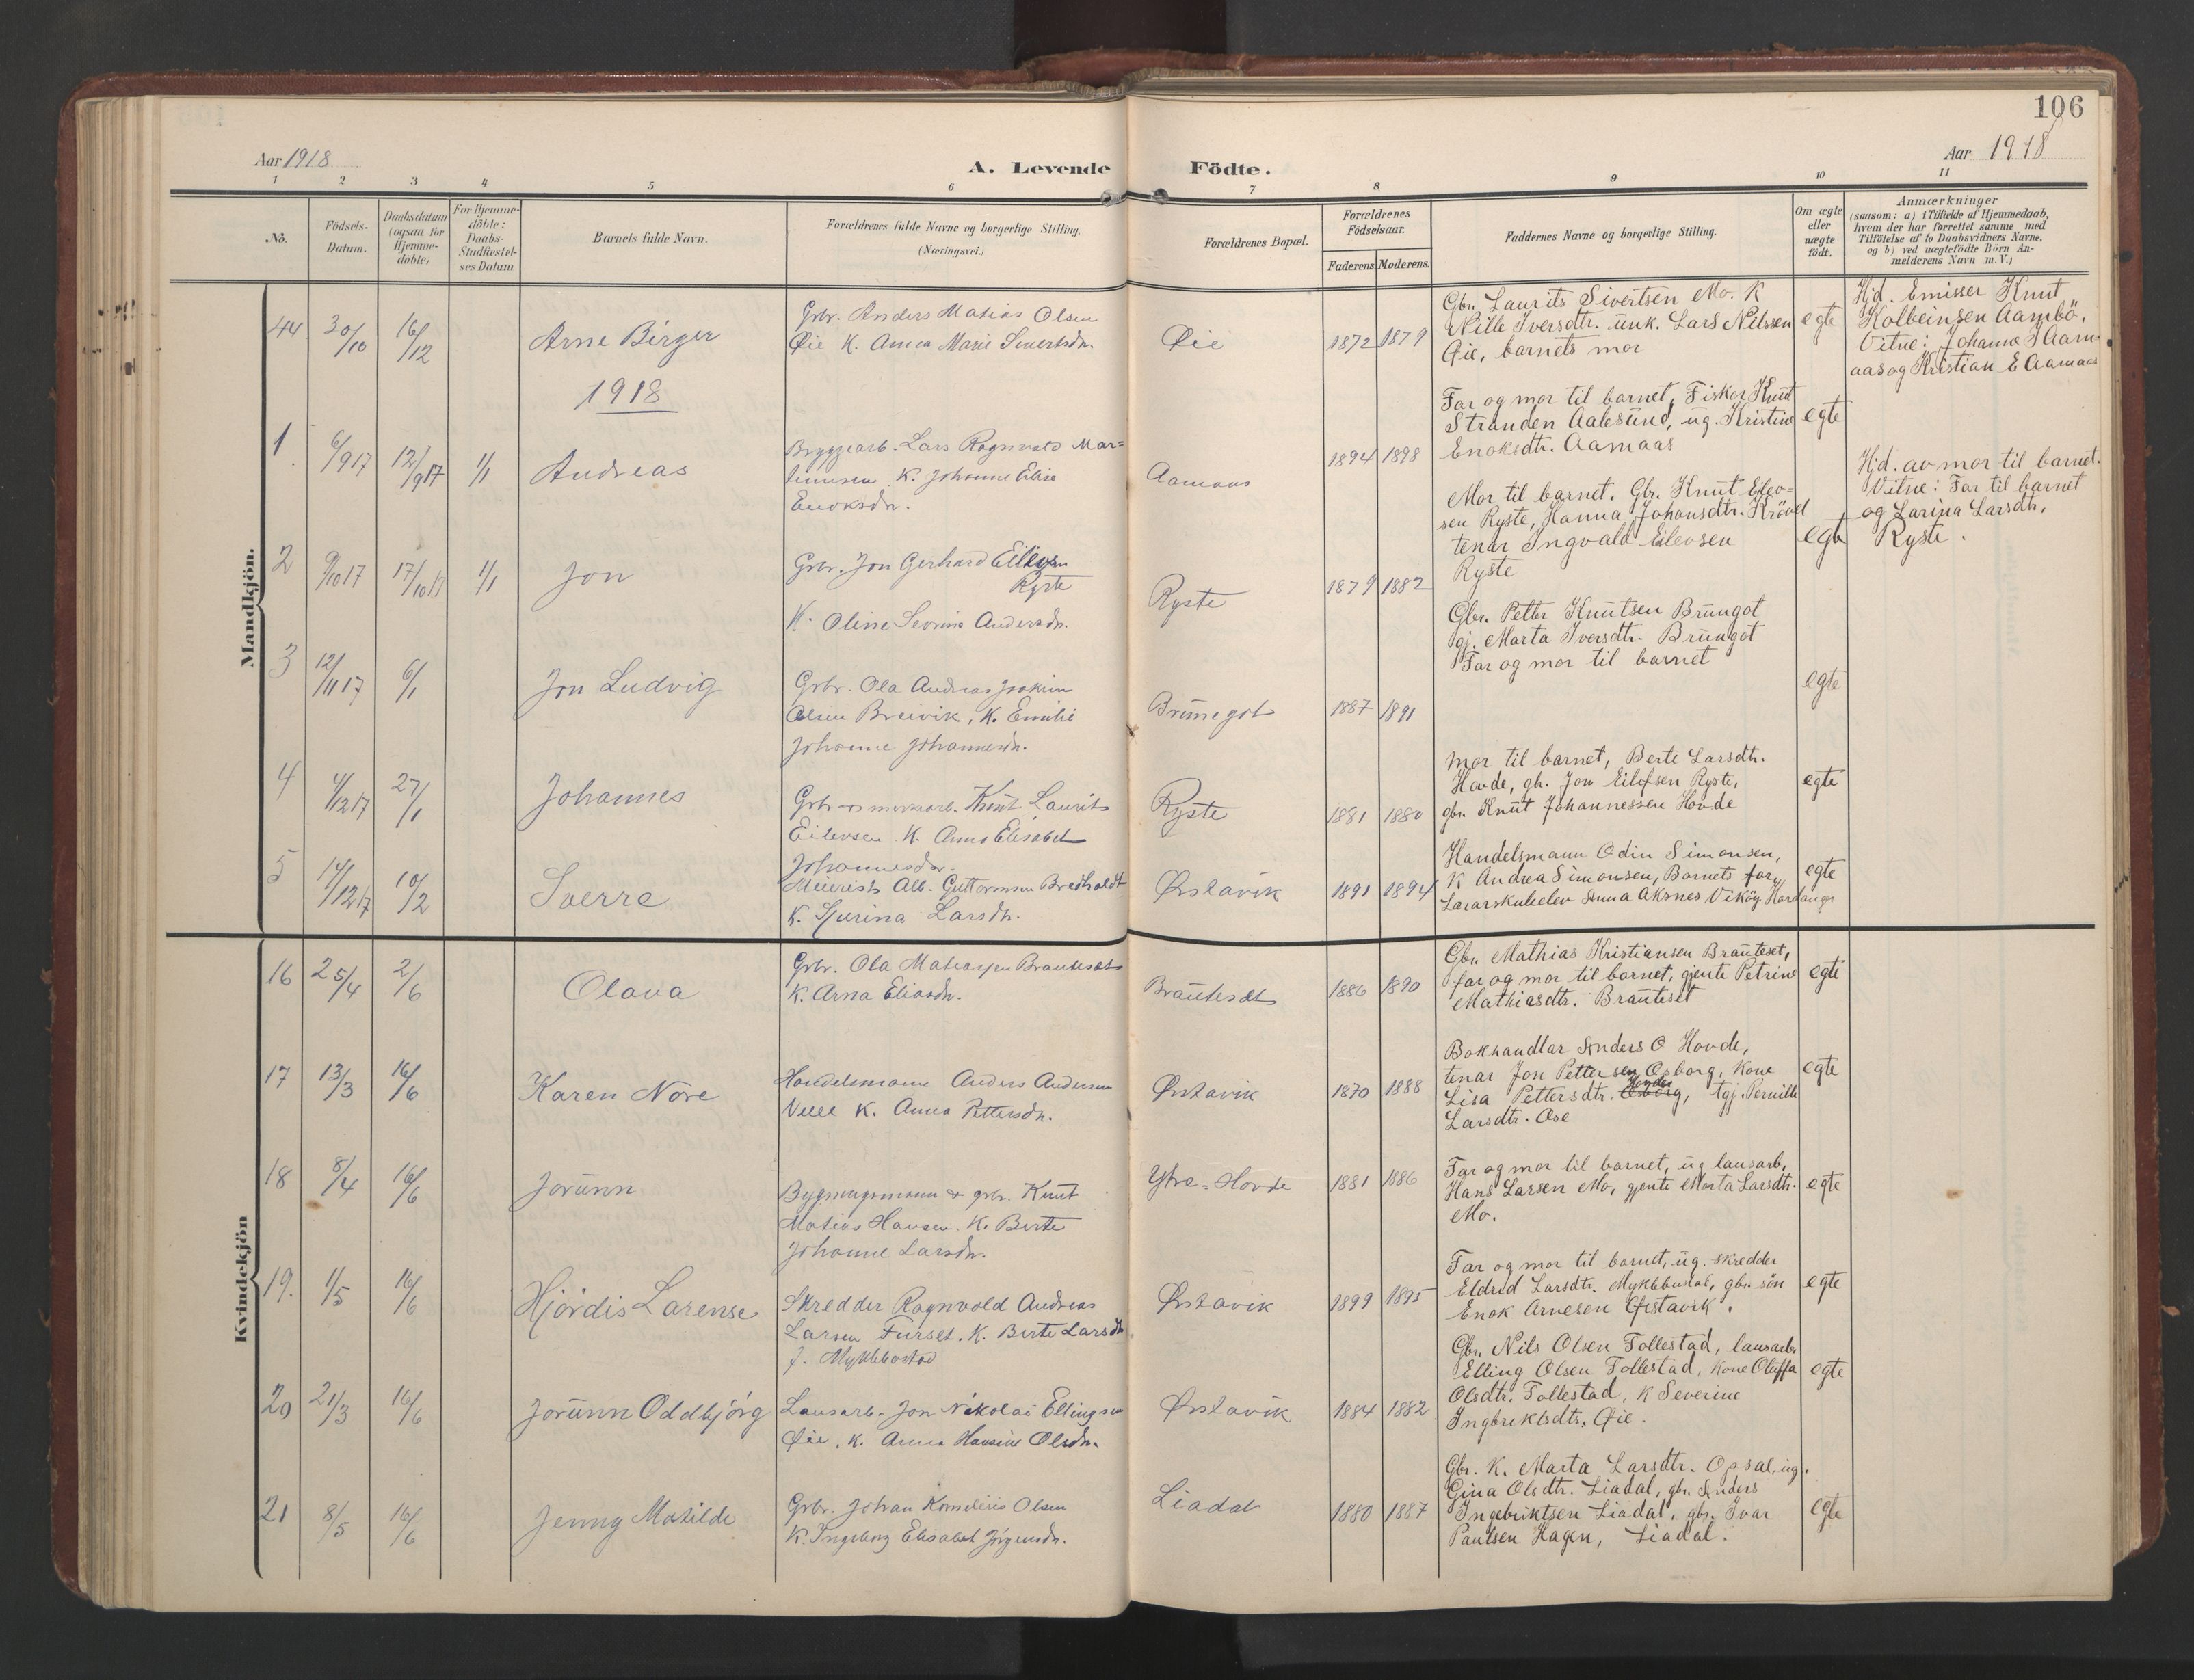 106
Aar 1918
A. Levende Födte.
Aar 1918
1 2 3 4 5 6 7 8 9 10 11
No.
Födsels-
Datum.
Daabsdatum
(ogsaa for
Hjemme-
döbte)
For Hjemme-
döbte:
Daabs-
Stadfæstel-
ses Datum
Barnets fulde Navn.
Forældrenes fulde Navne og borgerlige Stilling.
(Næringsvei.)
Forældrenes Bopæl.
Forældrenes
Födselsaar.
Faderens. Moderens.
Faddernes Navne og borgerlige Stilling.
Om ægte
eller
uægte
født.
Anmærkninger
(saasom: a) i Tilfælde af Hjemmedaab,
hvem der har forrettet samme med
Tilføielse af to Daabsvidners Navne,
og b) ved uægtefödte Börn An-
melderens Navn m. V.)
Mandkjön.
44 30/10 16/12 Arne Birger
Grbr. Anders Matias Olsen
Øie K. Anna Marie Sivertsdn.
Øie 1872 1879
Gbr. Laurits Sivertsen Mo. K
Nille Iversdtr. unk. Lars Nilssen
Øie, barnets mor
egte
Hjd. Emisser Knut
Kolbeinsen Aambö.
Vitne: Johanne Aam-
aas og Kristian E Aamaas
1918
1. 6/9 17 12/9 17 1/1 Andreas
Bryggearb. Lars Ragnvald Mar-
tinusen K. Johanne Elise
Enoksdn.
Aamaas 1894 1898
Far og mor til barnet, Fisker Knut
Stranden Aalesund, ug. Kristine
Enoksdtr. Aamaas
egte
2 9/10 17 17/10 17 1/1 Jon
Grbr. Jon Gerhard Eilevsen
Ryste
K. Oline Sevrine Andersdn.
Ryste 1879 1882
Mor til barnet. Gbr. Knut Eilev-
sen Ryste, Hanna Johansdtr. Krövel
tenar Ingvald Eilevsen
Ryste
egte
Hjd. av mor til barnet.
Vitne: Far til barnet
og Larina Larsdtr,
Ryste.
3 12/11 17 6/1 Jon Ludvig
Grbr. Ola Andreas Joakim
Olsen Breivik, K. Emilie
Johanne Johannesdn.
Brunegot 1887 1891
Gbr. Petter Knutsen Brungot
gj. Marta Iversdtr. Brungot
Far og mor til barnet
egte
4 4/12 17 27/1 Johannes
Grbr. Knut Laurits
Eilevsen K. Anna Elisabet
Johannesdn.
Ryste 1881 1880
Mor til barnet, Berte Larsdtr.
Hovde, gbr. Jon Eilefsen Ryste,
gbr. Knut Johannessen Hovde
egte
5 14/12 17 10/2 Sverre
Meierist Alb. Guttormsen Bredholdt
K. Sjurina Larsdn.
Ørstavik 1891 1894
Handelsmann Odin Simonsen,
K Andrea Simonsen, Barnets far,
Lærarskuleelev Anna Aksnes Vikøy Hardanger
egte
Kvindekjön
16 25/4 2/6 Olava
Grbr. Ola Matiasen Brauteset
K. Arna Eliasdn.
Brauteset 1886 1890
Gbr. Mathias Kristiansen Brauteset,
far og mor til barnet, gjente Petrine
Mathiasdtr. Brauteset
egte
17 13/3 16/6 Karen Nore
Handelsmann Anders Andersen
Velle K. Anna Pettersdn.
Ørstavik 1870 1888
Bokhandlar Anders O Hovde,
tenar Jon Pettersen Osborg, Kone
Lisa Pettersdtr. Hovde, tgj. Pernille
Larsdtr. Ose
egte
18 8/4 16/6 Jorunn
Bygningsmann & grbr. Knut
Matias Hansen. K. Berte
Johanne Larsdn.
Ytre-Hovde 1881 1886
Far og mor til barnet, ug lausarb.
Hans Larsen Mo, gjente Marta Larsdtr.
Mo.
egte
19. 1/5 16/6 Hjördis Larense
Skredder Ragnvald Andreas
Larsen Furset. K. Berte Larsdtr
f. Myklebostad
Ørstavik 1899 1895
Far og mor til barnet, ug. skredder
Eldrid Larsdtr. Myklebustad, gbr. sön
Enok Arnesen Ørstavik.
egte
20 21/3 16/6 Jorunn Oddbjörg
Lausarb. Jon Nikolai Ellingsen
Øie, K. Anna Hansine Olsdn.
Ørstavik 1884 1882
Gbr. Nils Olsen Follestad, lausarb.
Elling Olsen Follestad, Kone Oluffa
Olsdtr. Follestad, K Severine
Ingbriktsdtr. Øie.
egte
21 8/5 16/6 Jenny Matilde
Grbr. Johan Kornelius Olsen
K. Ingeborg Elisabet Jörgensdn.
Liadal 1880 1887
Gbr. K. Marta Larsdtr. Opsal, ug.
Gina Olsdtr. Liadal, gbr. Anders
Ingebriktsen Liadal, gbr. Ivar
Paulsen Hagen, Liadal.
egte